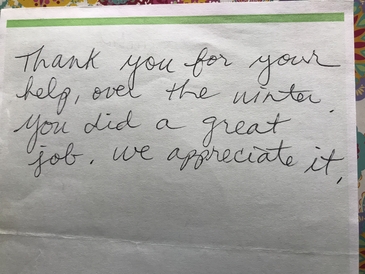 Thank you for your
help, over the winter.
You did a great
job. We appreciate it.